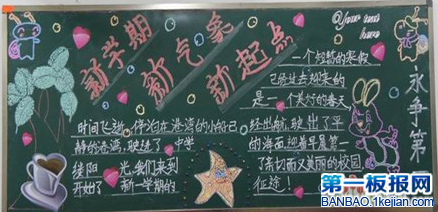 新学期
新气象
新起点
Your text
here
一个短暂的寒假
已经过去迎来的
是一个美好的春天
永争第一
时间飞逝，停泊在港湾的小船已
经出航，驶出了平
静的港湾，驶进了
的海面，迎着早晨第一
缕阳光，我们来到
了亲切而又美丽的校园，
开始了新一学期的
征途！
第一板报网
BANBAO.1kejian.com